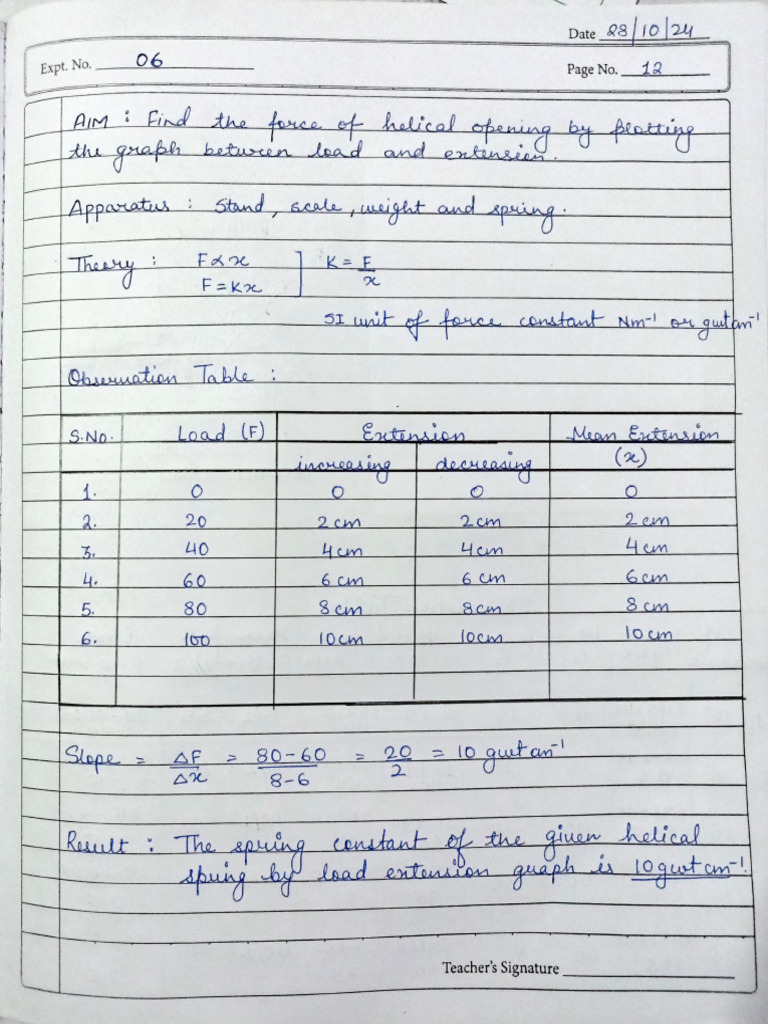 Date 28/10/24
Expt. No. 06
Page No. 12
AIM : Find the force of helical opening by plotting
the graph between load and extension.
Apparatus : Stand, scale, weight and spring.
Theory : F∝x ] K = F/x
F=Kx
SI unit of force constant Nm⁻¹ or gwtcm⁻¹
Observation Table :
S.No. Load (F) Extension Mean Extension
increasing decreasing (x)
1. 0 0 0 0
2. 20 2cm 2cm 2cm
3. 40 4cm 4cm 4cm
4. 60 6cm 6cm 6cm
5. 80 8cm 8cm 8cm
6. 100 10cm 10cm 10cm
Slope = ΔF/Δx = 80-60/8-6 = 20/2 = 10 gwtcm⁻¹
Result : The spring constant of the given helical
spring by load extension graph is 10gwtcm⁻¹.
Teacher's Signature